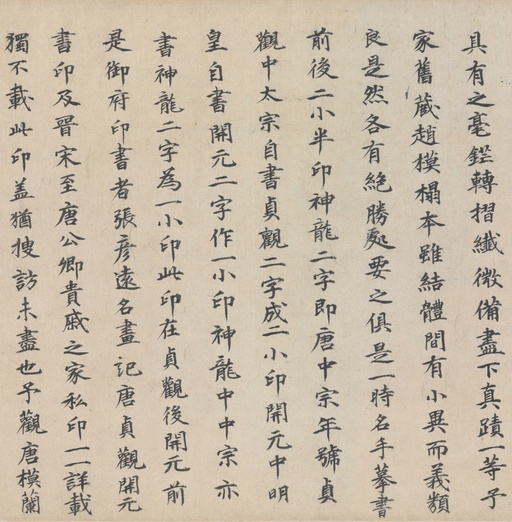 具有之毫鋩轉摺纖微備盡下真蹟一等予
家舊藏趙模榻本雖結體間有小異而義類
良是然各有絕勝處要之俱是一時名手摹書
前後二小半印神龍二字即唐中宗年號貞
觀中太宗自書貞觀二字成二小印開元中明
皇自書開元二字作一小印神龍中中宗亦
書神龍二字為一小印此印在貞觀後開元前
是御府印書者張彥遠名畫記唐貞觀開元
書印及晉宋至唐公卿貴戚之家私印一一詳載
獨不載此印盖猶搜訪未盡也予觀唐模蘭